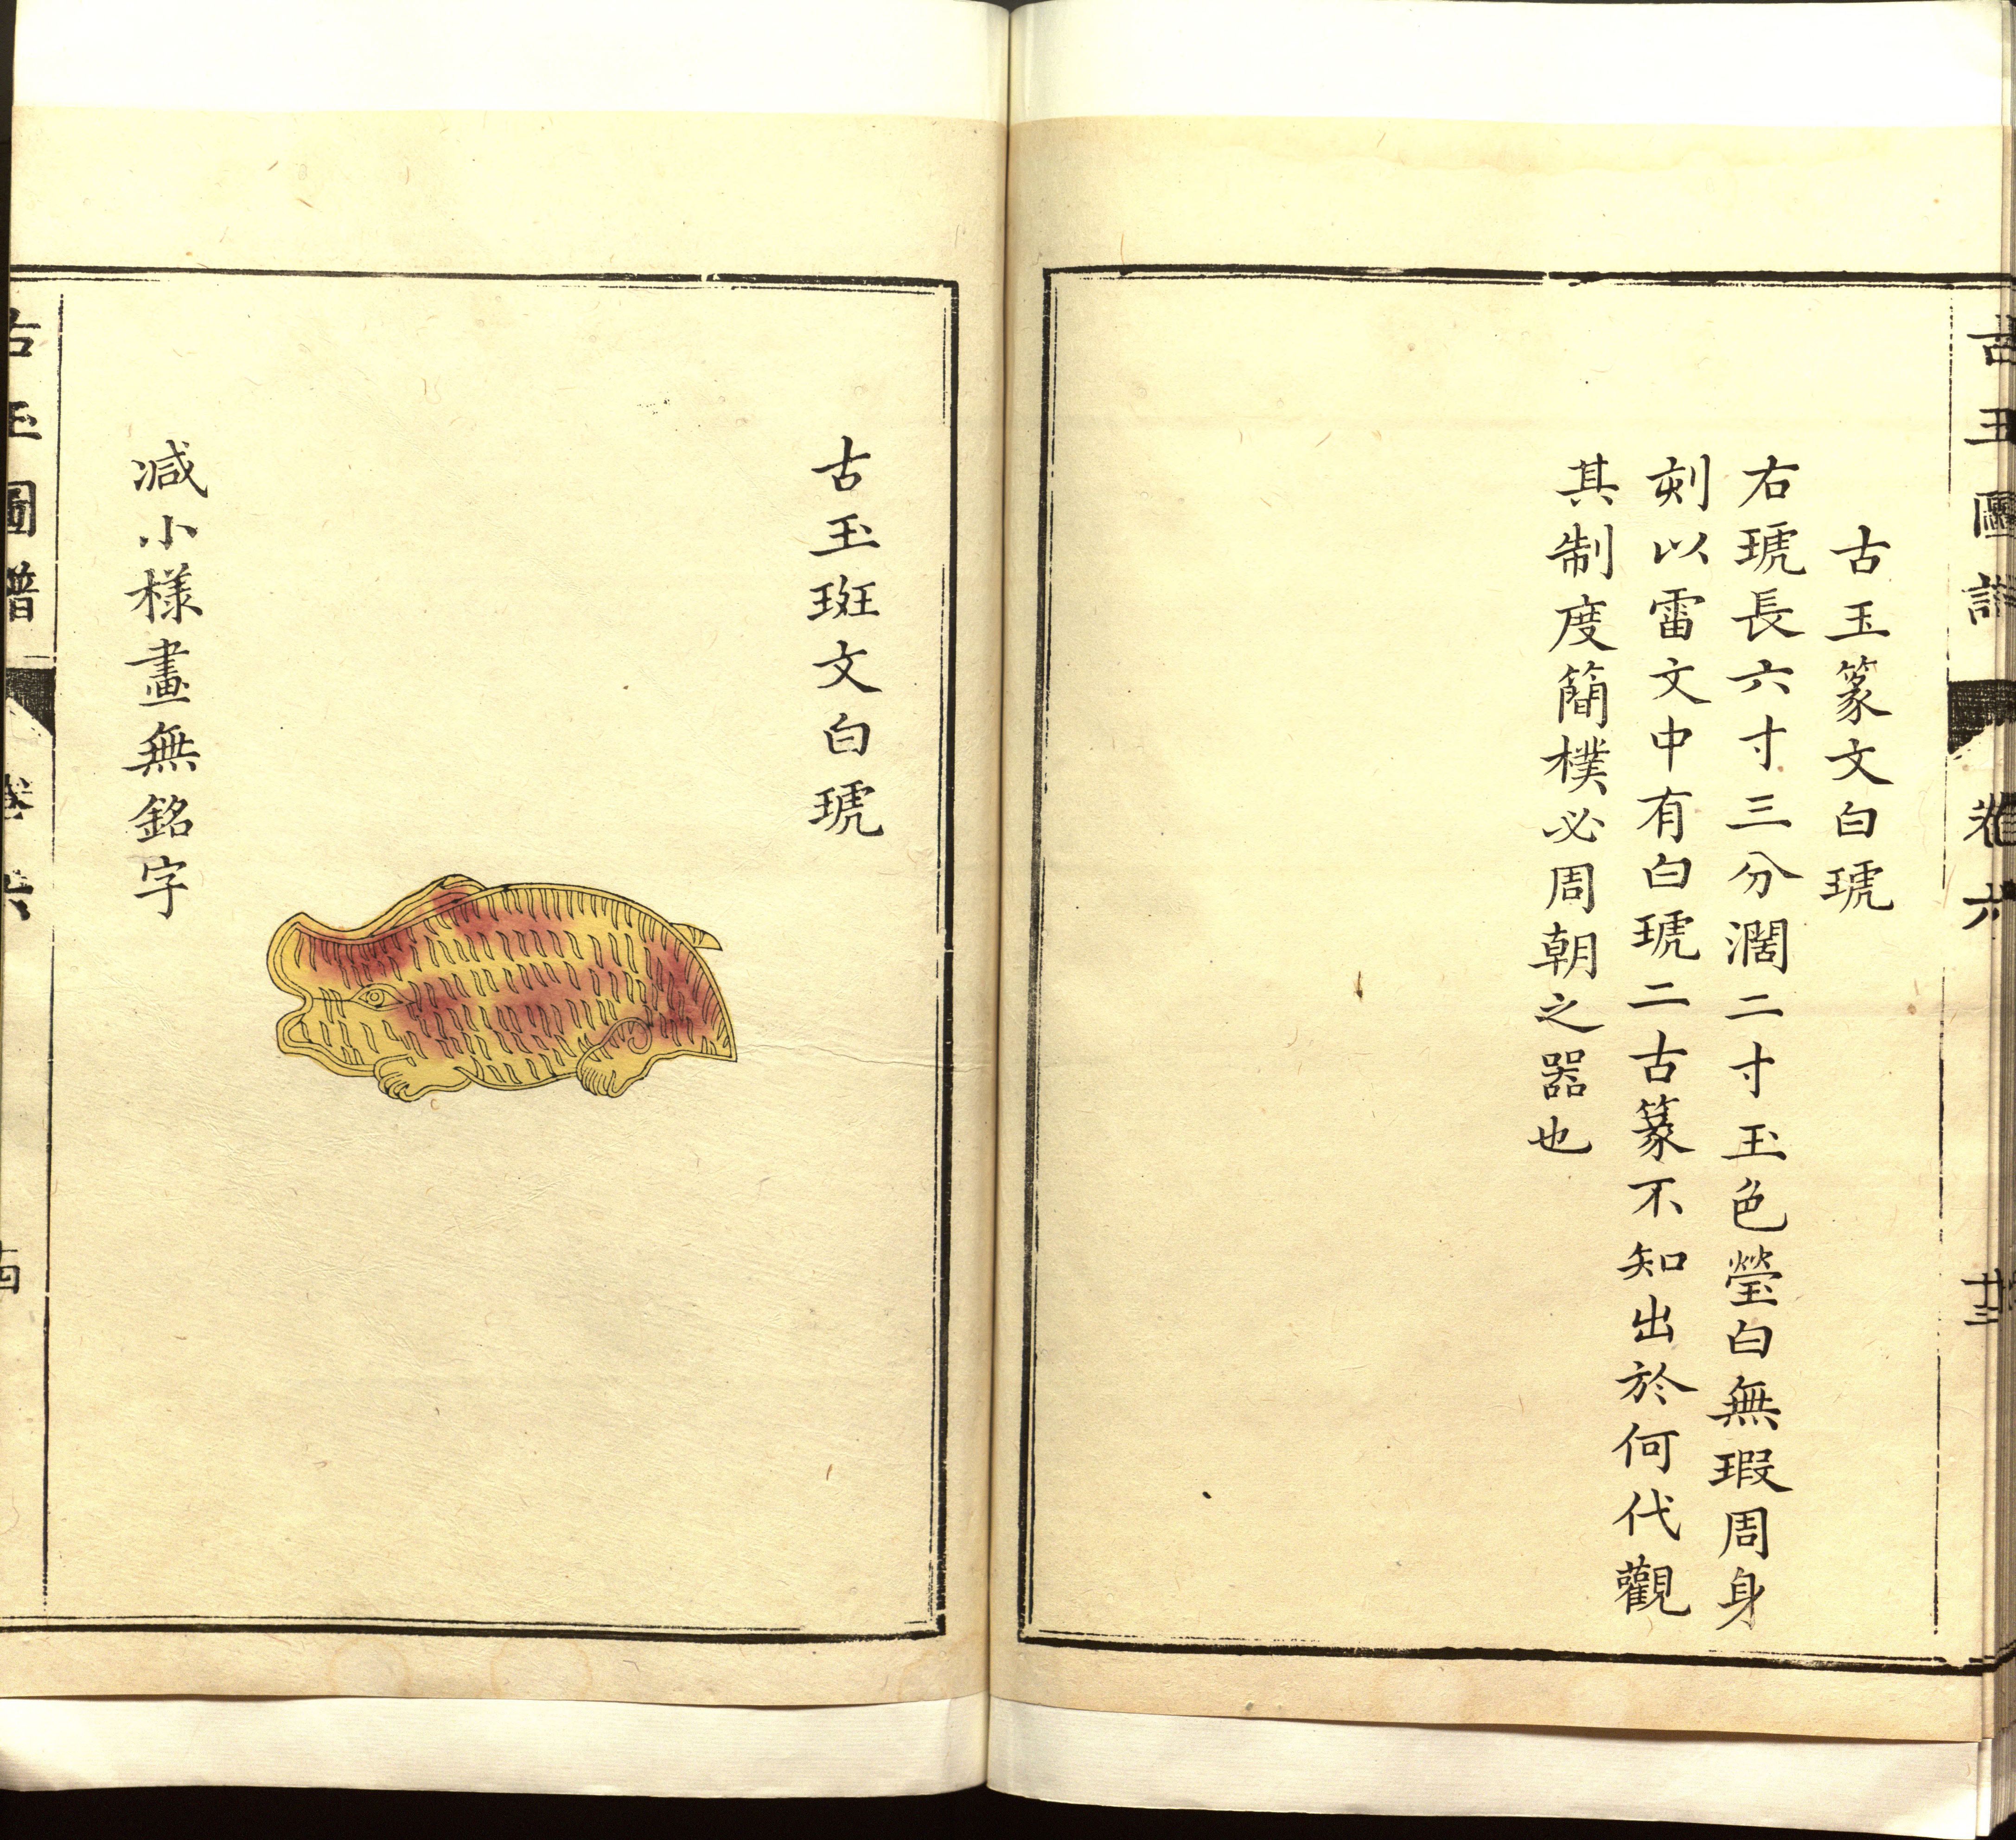 古玉圖譜 卷六 廿三
古玉篆文白琥
右琥長六寸三分濶二寸玉色瑩白無瑕周身
刻以雷文中有白琥二古篆不知出於何代觀
其制度簡樸必周朝之器也
古玉斑文白琥
減小樣畫無銘字
古玉圖譜 卷六